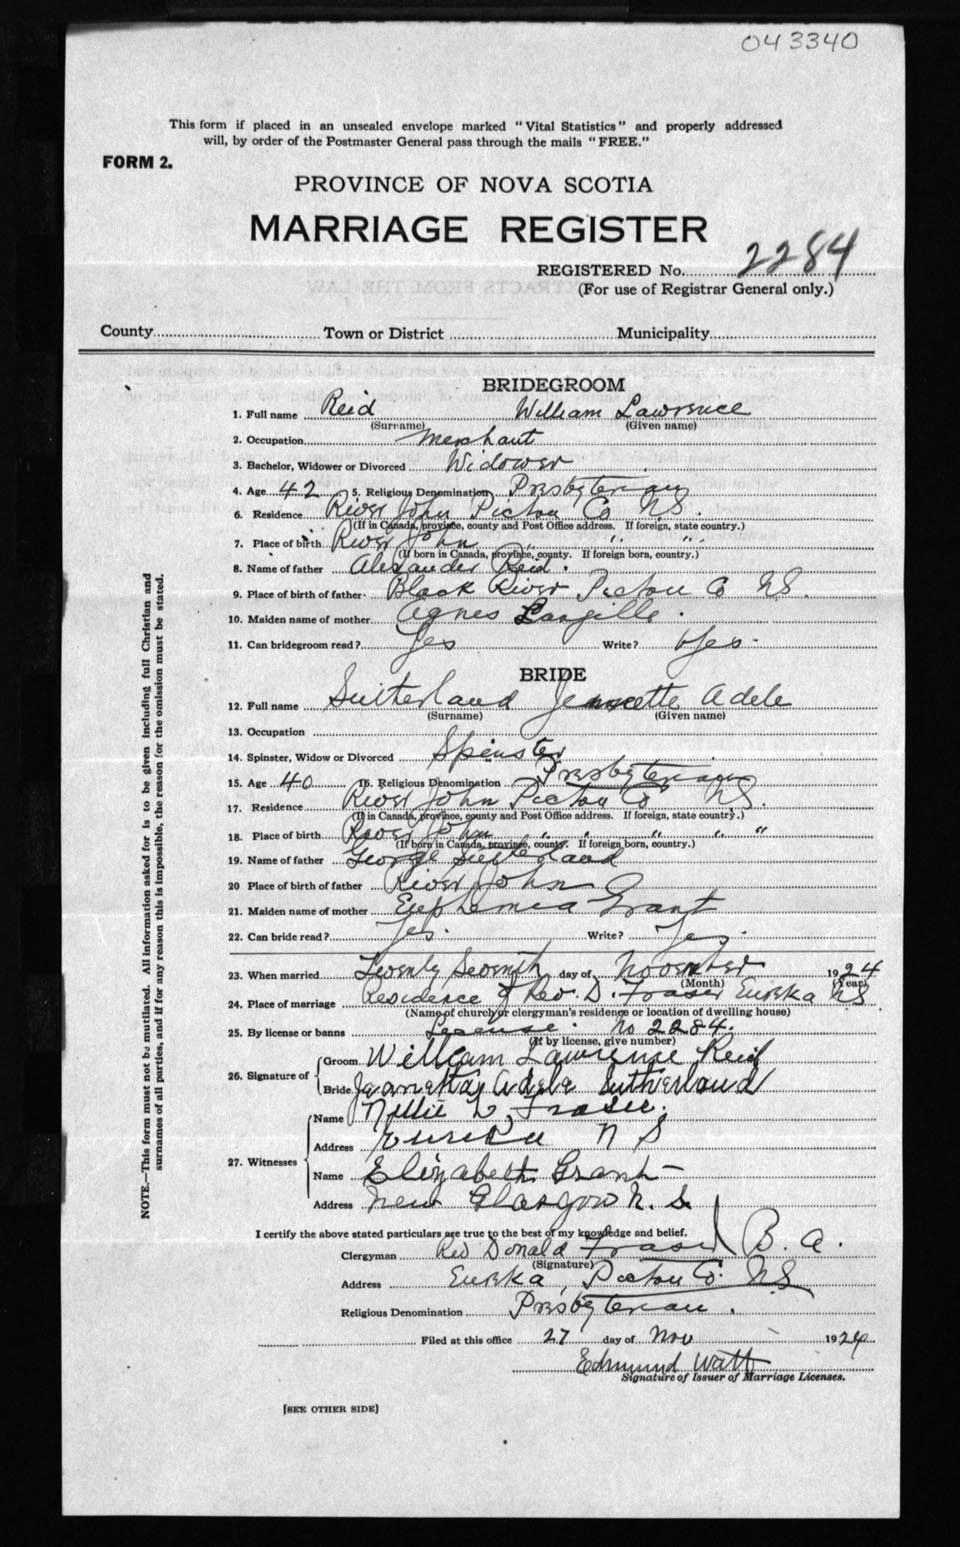 043340
This form if placed in an unsealed envelope marked "Vital Statistics" and properly addressed
will, by order of the Postmaster General pass through the mails "FREE."
FORM 2.
PROVINCE OF NOVA SCOTIA
MARRIAGE REGISTER
REGISTERED No. 2284
(For use of Registrar General only.)
County Town or District Municipality
BRIDEGROOM
1. Full name Reid William Lawrence
(Surname) (Given name)
2. Occupation Merchant
3. Bachelor, Widower or Divorced Widower
4. Age 42 5. Religious Denomination Presbyterian
6. Residence River John Pictou Co NS
(If in Canada, province, county and Post Office address. If foreign, state country.)
7. Place of birth River John " "
(If born in Canada, province, county. If foreign born, country.)
8. Name of father Alexander Reid.
9. Place of birth of father Black River Pictou Co NS.
10. Maiden name of mother Agnes Langille.
11. Can bridegroom read? Yes Write? Yes
BRIDE
12. Full name Sutherland Jeannette Adele
(Surname) (Given name)
13. Occupation
14. Spinster, Widow or Divorced Spinster
15. Age 40 16. Religious Denomination Presbyterian
17. Residence River John Pictou Co NS.
(If in Canada, province, county and Post Office address. If foreign, state country.)
18. Place of birth River John " " " " "
(If born in Canada, province, county. If foreign born, country.)
19. Name of father George Sutherland
20 Place of birth of father River John
21. Maiden name of mother Euphemia Grant
22. Can bride read? Yes. Write? Yes.
23. When married Twenty Seventh day of November 1924
(Month) (Year)
24. Place of marriage Residence of Rev. D. Fraser Eureka NS
(Name of church or clergyman's residence or location of dwelling house)
25. By license or banns License. No 2284.
(If by license, give number)
26. Signature of Groom William Lawrence Reid
Bride Jeanetta Adele Sutherland
27. Witnesses Name Nellie L. Fraser.
Address Eureka N S
Name Elizabeth Grant
Address New Glasgow N. S.
I certify the above stated particulars are true to the best of my knowledge and belief.
Clergyman Rev Donald Fraser B. A.
(Signature)
Address Eureka, Pictou Co. NS
Religious Denomination Presbyterian.
Filed at this office 27 day of Nov 1924
Edmund Watt
Signature of Issuer of Marriage Licenses.
[SEE OTHER SIDE]
NOTE.—This form must not be mutilated. All information asked for is to be given including full Christian and
surnames of all parties, and if for any reason this is impossible, the reason for the omission must be stated.